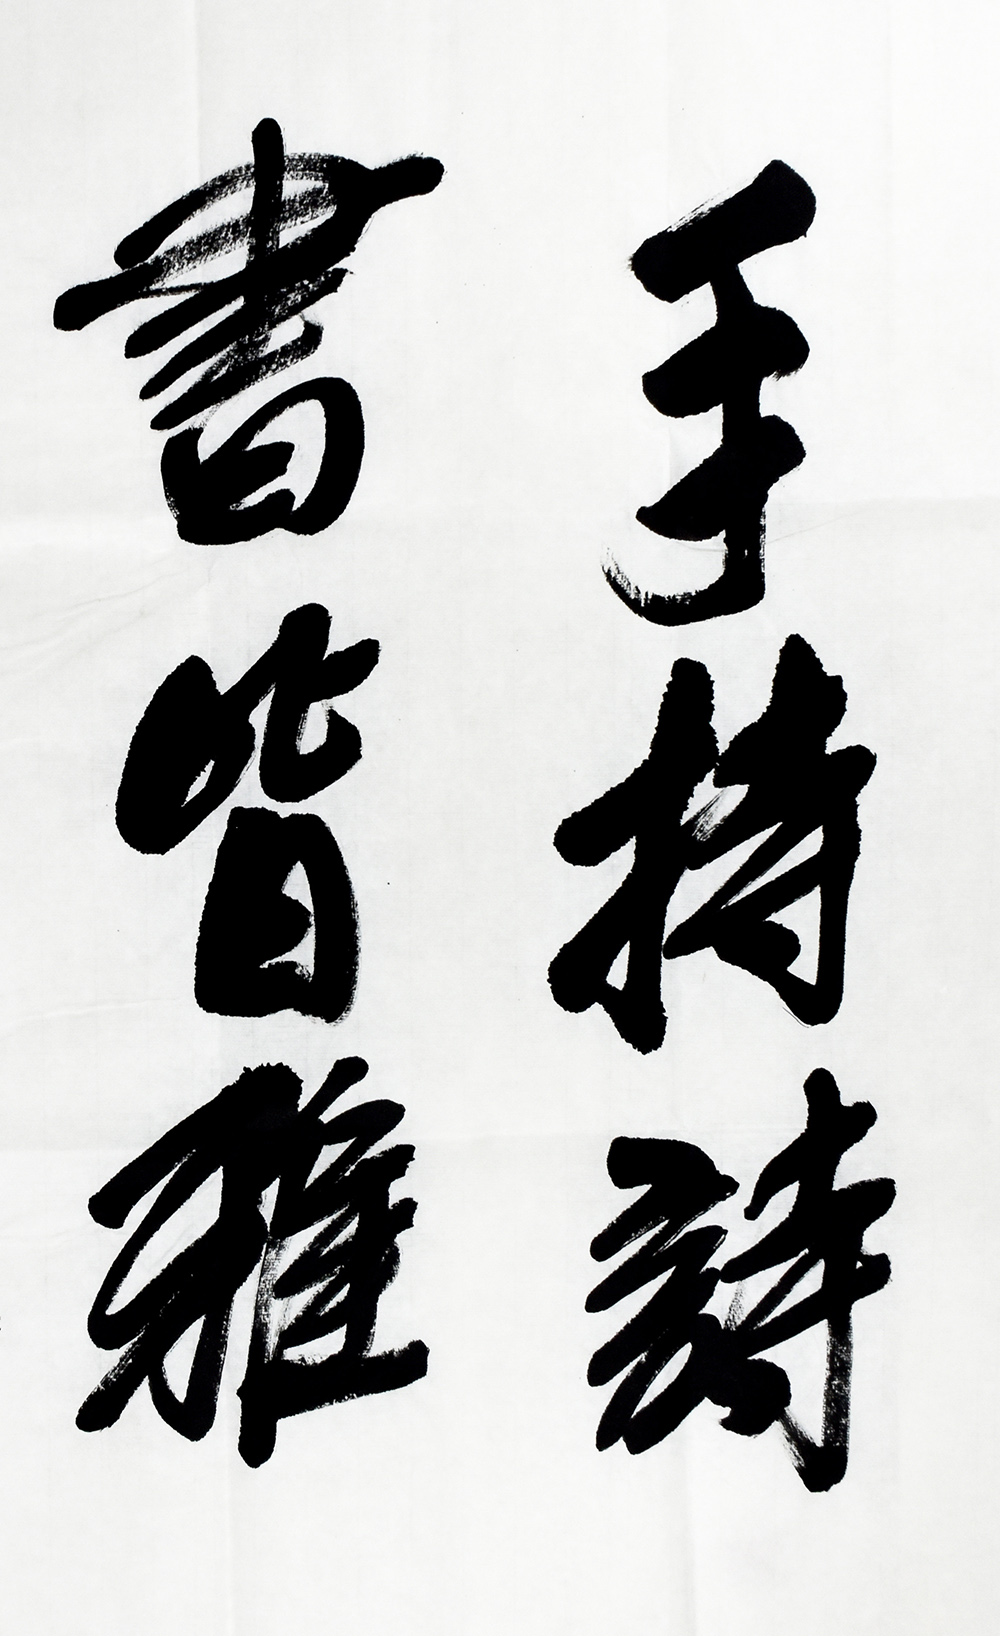 手持詩
書皆雅